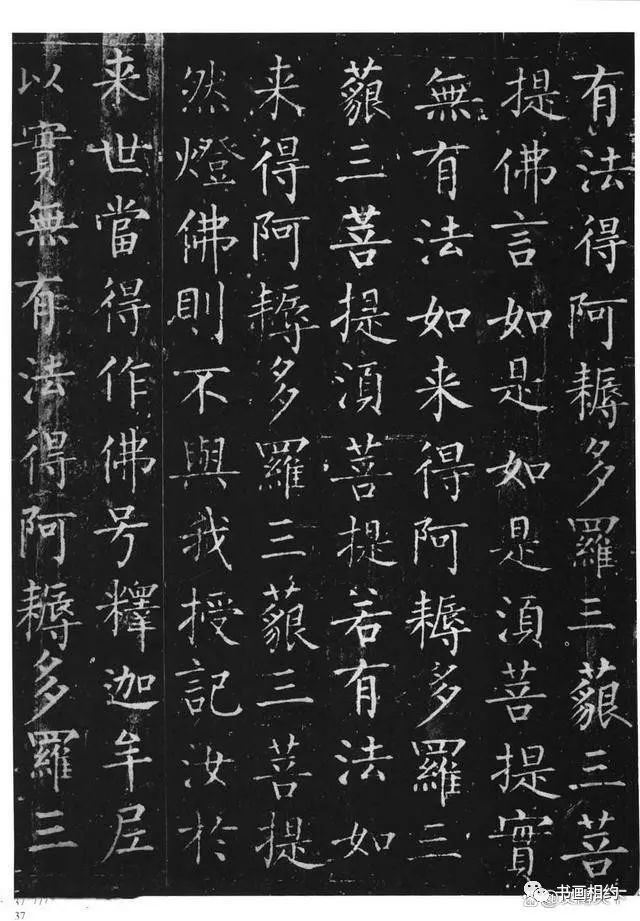 有法得阿耨多羅三藐三菩
提佛言如是如是湏菩提實
無有法如来得阿耨多羅三
藐三菩提湏菩提若有法如
来得阿耨多羅三藐三菩提
然燈佛則不與我授記汝於
来世當得作佛号釋迦牟尼
以實無有法得阿耨多羅三
37
书画相约